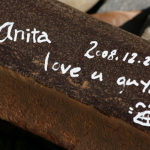 Anita
2008.12.2
love u guy